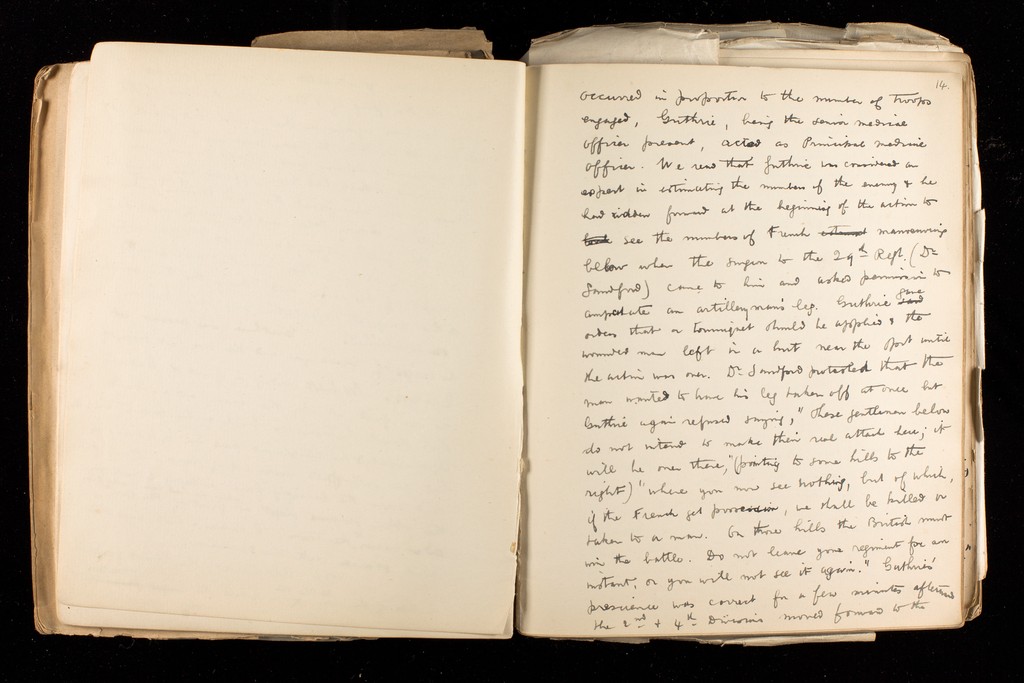 14.
occurred in proportion to the number of troops
engaged, Guthrie, being the senior medical
officer present, acted as Principal medical
officer. We read that Guthrie was considered an
expert in estimating the numbers of the enemy & he
had ridden forward at the beginning of the action to
see the numbers of French manoeuvring
below when the surgeon to the 29th Regt. (Dr
Sandford) came to him and asked permission to
amputate an artilleryman's leg. Guthrie gave
orders that a tourniquet should be applied & the
wounded man left in a hut near the spot until
the action was over. Dr Sandford protested that the
man wanted to have his leg taken off at once but
Guthrie again refused saying, "These gentlemen below
do not intend to make their real attack here; it
will be over there," (pointing to some hills to the
right) "where you now see nothing, but of which,
if the French get possession, we shall be killed or
taken to a man. On those hills the British must
win the battle. Do not leave your regiment for an
instant, or you will not see it again." Guthrie's
prescience was correct for a few minutes afterward
the 2nd & 4th Divisions moved forward to the